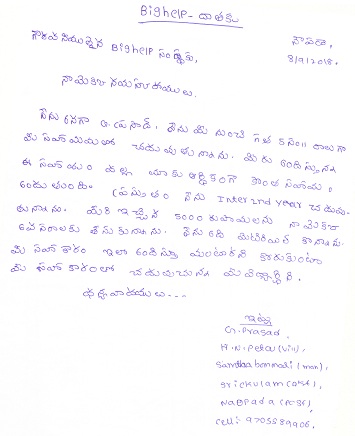 Bighelp - దాతకు
గౌరవనీయులైన Bighelp సంస్థకు,
నౌపడా,
8/9/2018.
నా యొక్క నమస్కారములు.
నేను అనగా G. ప్రసాద్, నేను మీ నుంచి గత కొన్ని సంవ॥ రాలుగా
మీ సహాయముతో చదువుతున్నాను. మీరు అందిస్తున్న
ఈ సహాయం వల్ల నాకు ఆర్థికంగా కొంత సహాయం
అందుతుంది. ప్రస్తుతం నేను Inter 2nd year చదువు-
తున్నాను. మీరు ఇచ్చిన 5000 రూపాయలను నా యొక్క
అవసరాలకు తీసుకున్నాను. నేను
మీ సహకారం ఇలా అందిస్తూ ఉంటారని కోరుకుంటూ
మీ సహకారంతో చదువుచున్న మీ విద్యార్థిని.
ధన్యవాదములు...
ఇట్లు
G. Prasad.
H.N. Peta (vill),
Santhabommali (man),
Srickulam (Dst),
Naupada (RS),
Cell: 9705889906.